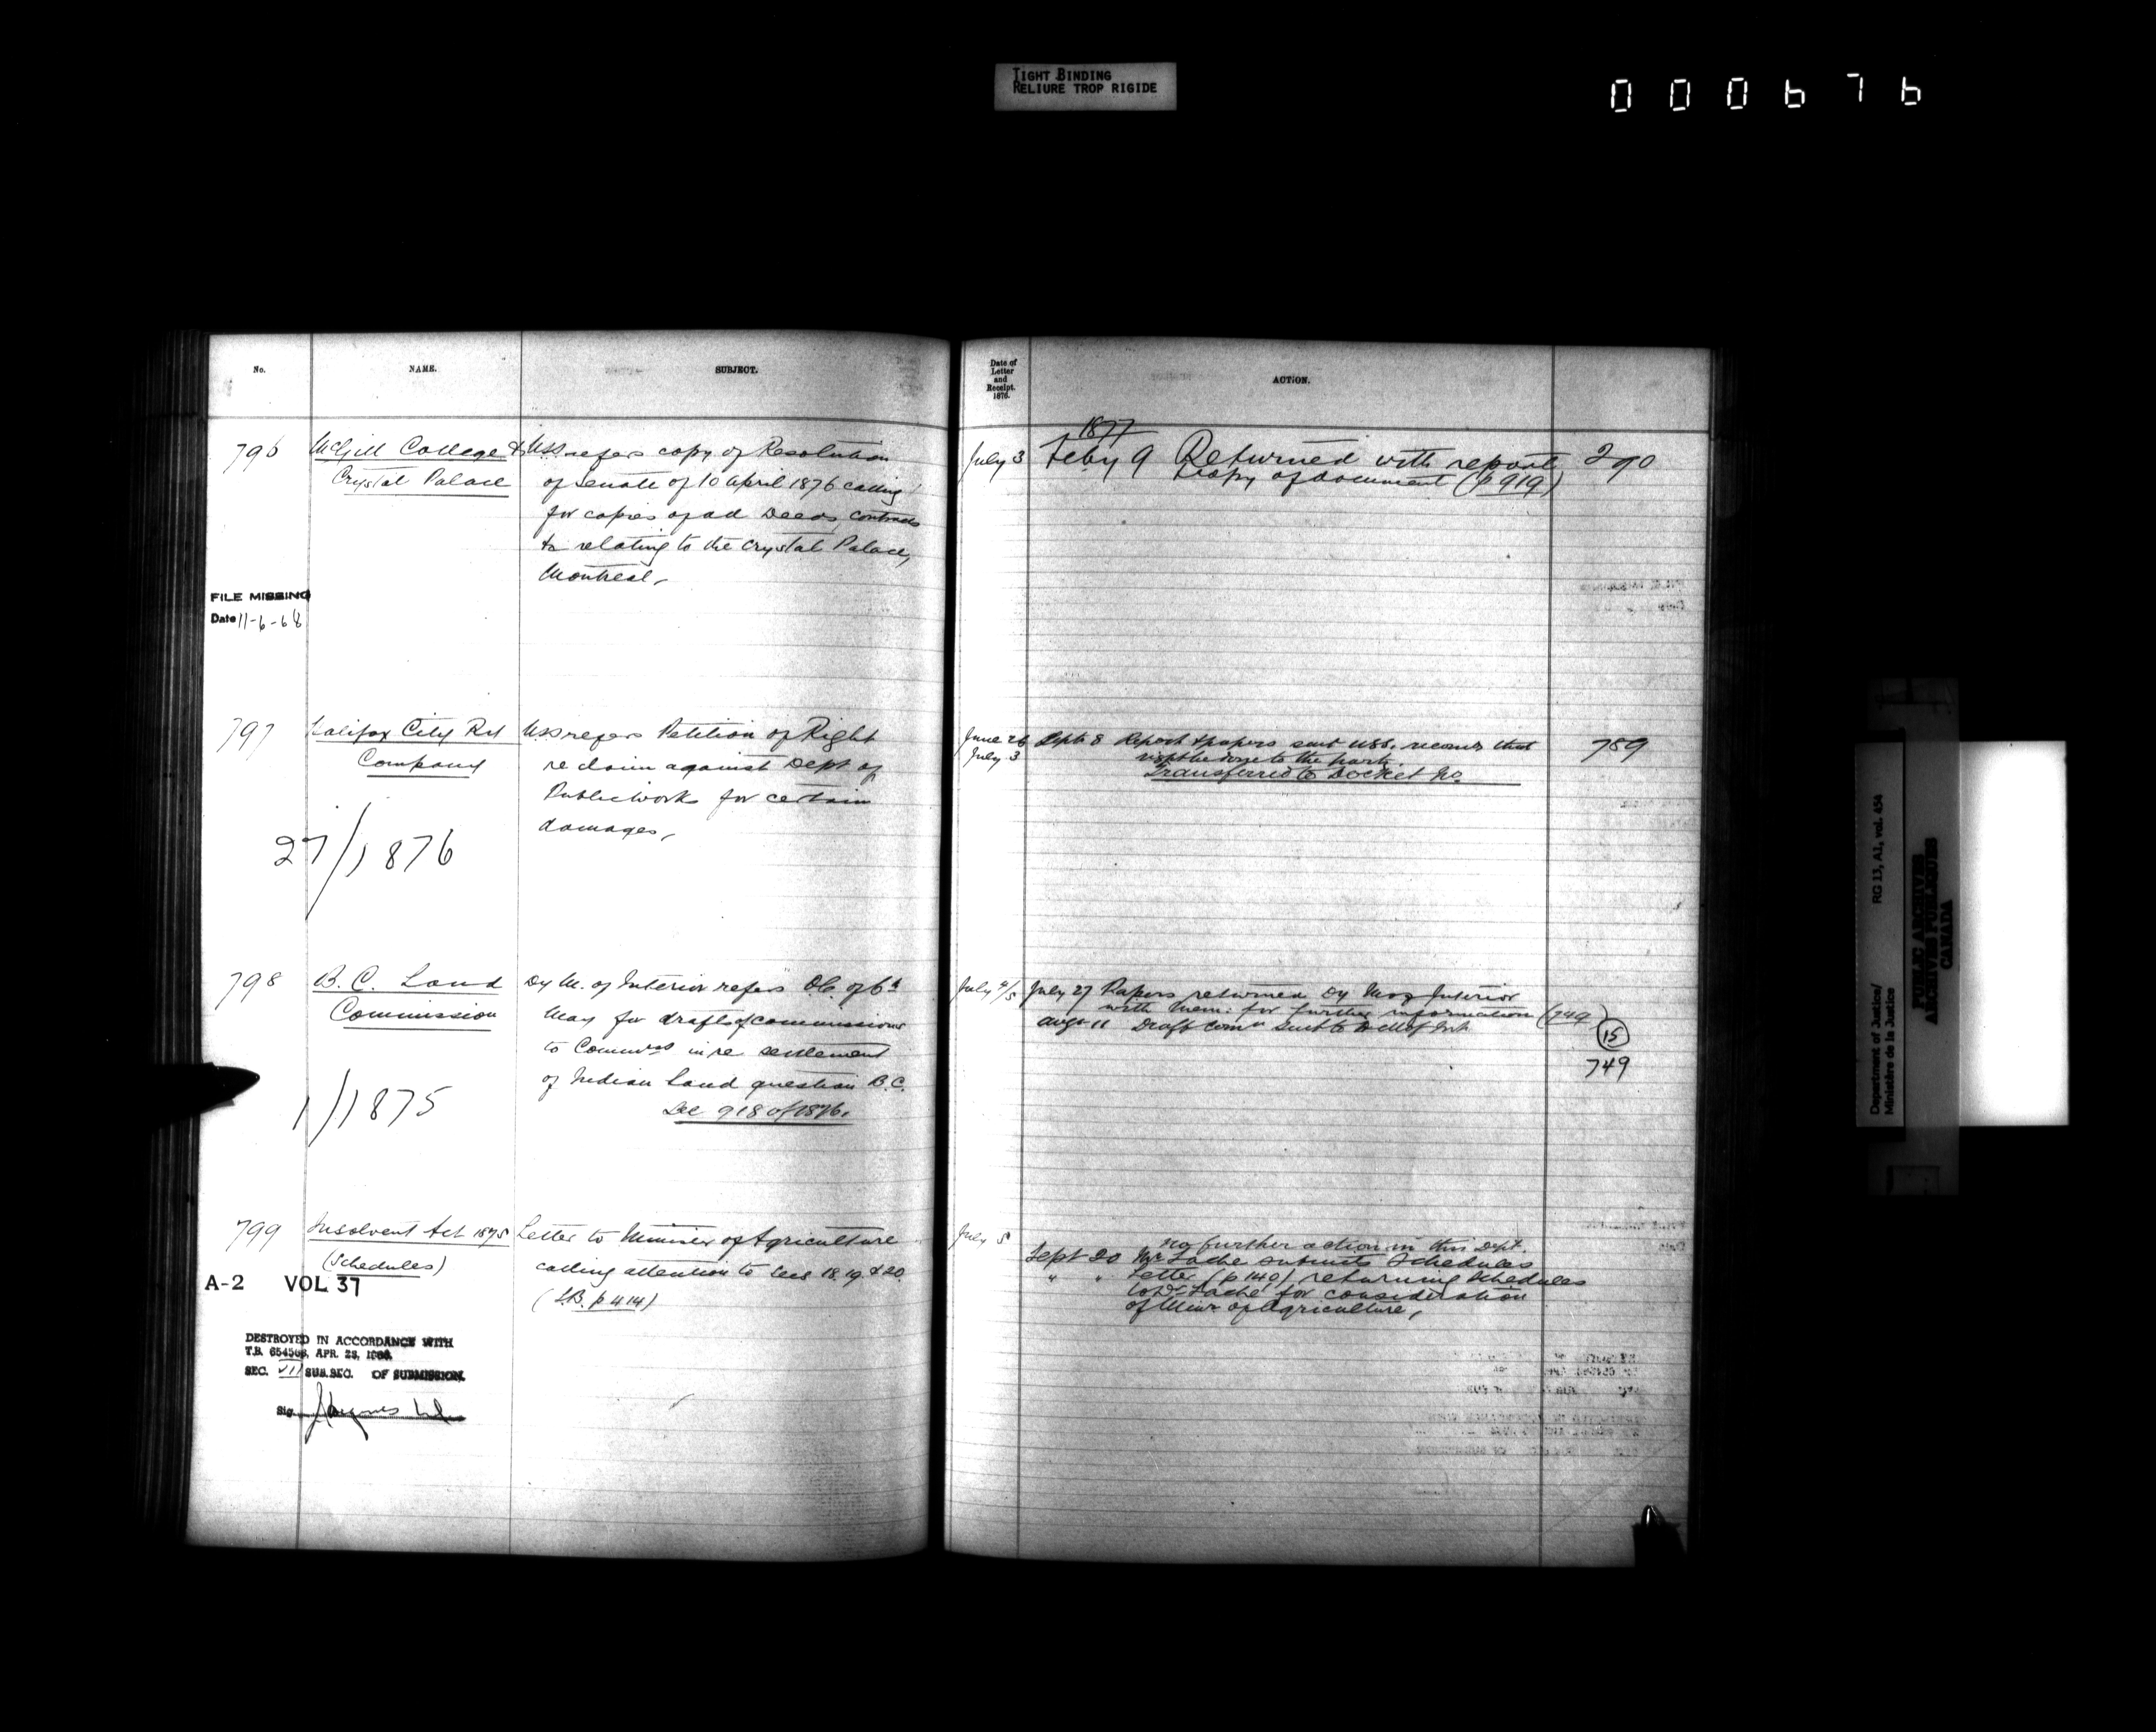 TIGHT BINDING
RELIURE TROP RIGIDE
000676
No.
NAME.
SUBJECT.
Date of
Letter
and
Receipt.
1876.
ACTION.
796
McGill College &
Crystal Palace
USS refers copy of Resolution
of Senate of 10 April 1876 calling
for copies of all Deeds, contracts
&c relating to the Crystal Palace,
Montreal,
FILE MISSING
Date 11-6-68
July 3
1877
Feby 9 Returned with report
& copy of document (p 919)
290
797
Halifax City Rd
Company
27/1876
USS refers Petition of Right
re claim against Dept of
Public Works for certain
damages,
June 26
July 3
Sept 8 Report & papers sent USS. recomds that
right be done to the party.
Transferred to Docket No
789
798
B. C. Land
Commission
1/1875
Dy M. of Interior refers O.C. of 6th
May for drafts of commissions
to Commrs in re settlement
of Indian Land question B.C.
See 918 of 1876.
July 4/5
July 27 Papers returned Dy M of Interior
with mem: for further information (749
Augt 11 Draft Comn sent to D M of Int.
15
749
799
Insolvent Act 1875
(Schedules)
A-2 VOL 37
Letter to Minister of Agriculture
calling attention to Secs 18, 19 & 20.
(L.B. p 414)
DESTROYED IN ACCORDANCE WITH
T.B. 654503, APR. 28, 1966.
SEC. VII SUB. SEC. OF SUBMISSION.
Sig.
July 5
No further action in this Dept.
Sept 20 Mr Tache submits Schedules
" " Letter (p 140) returning Schedules
to Dr Taché for consideration
of Minr of Agriculture,
Department of Justice/
Ministère de la Justice
RG 13, A1, vol. 454
PUBLIC ARCHIVES
ARCHIVES PUBLIQUES
CANADA